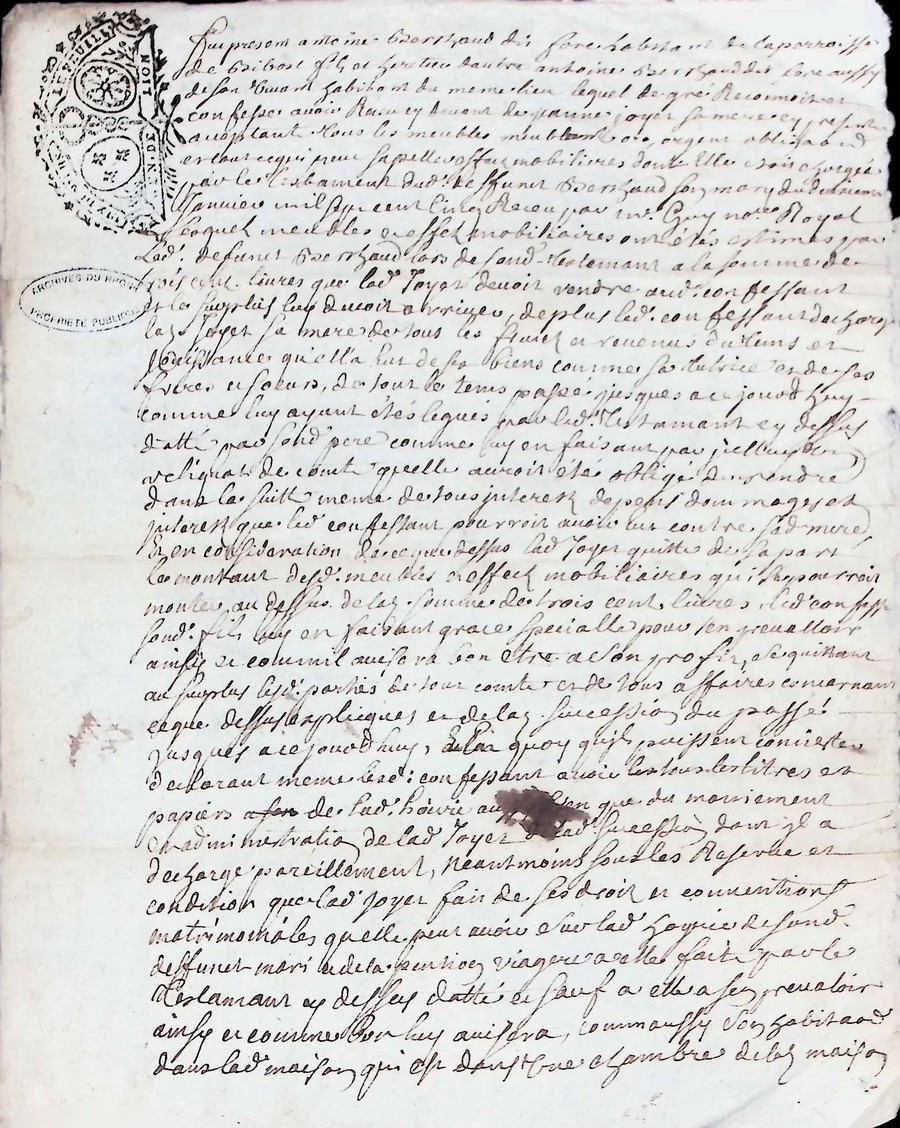 Fut presant antoine Berthaud dit fore habitant de laparroisse
de Bibost fils et heritier dautre antoine Berthaud dit fore aussy
de son vivant habitant du meme lieu lequel de gré Reconnoit et
confesse avoir Receu cy devant de jeanne joyet sa mere cy presente
acceptante tous les meubles meublant or, argent obligaõnd
et tout ce qui peut sapeller effet mobilieres dont elle
par le testament dud: deffunct Berthaud son mary du
Janvier mil sept cent cinq Receu par me. Guy notre Royal
Lesquel meubles et effect mobiliaires ont étés estimes par
Led: defunct Berthaud lors de sond. testamant a la somme de
trois cent livres que lad Joyet devoit rendre aud: confessant
et le surplus luy devoit arriver, de plus led: confessant decharge
lad. Joyet sa mere de tous les fruict et revenus du tems et
jouissances qu'ell'a eut de ses biens comme sa tutrice et de ses
freres et soeurs, de tout le tems passé jusques a ce jourd'huy
comme luy ayant étés legués par led: Testamant cy dessus
datté par sond' pere comme luy en faisant par
reliquat de comte quelle auroit été obligé de rendre
dans la suitte meme de tous interest depens dommages et
interest que led confessant pourroit avoir eut contre sad mere
Et en consideration de ce que dessus lad Joyet quitte de sa part
le montant desd. meubles et effect mobiliaires qui se pourroit
monter au dessus de lad. somme de trois cent livres led confess
sond. fils luy en faisant grace specialle pour sen prevalloir
ainsy et comm'il avisera bon etre a son profit, se quittant
au surplus lesd. parties de tout comte et de tous affaires concernant
ceque dessus expliqués et de lad. succession du passé
jusques a ce jourd'huy, quoy qu'ils puissent concister
declarant meme led: confessant avoir les tous les titres et
papiers de lad. hoirie en que du maniement
et administration de lad Joyet lad sucession dont il a
decharge pareillement, Neantmoins sous les Reserve et
condition que lad Joyet fait de ses droit et conventions
matrimoniales quelle peut avoir sur lad hoyrie de sond.
deffunct mari et de la pention viagere a elle faite par le
Testamant cy dessus datté et sauf a elle a sen prevaloir
ainsy et comme bon luy avisera, comm'aussy son habitaõn
dans lad maison qui est dans une chambre de lad. maison
ARCHIVES DU RHONE
PROPRIETE PUBLIQUE